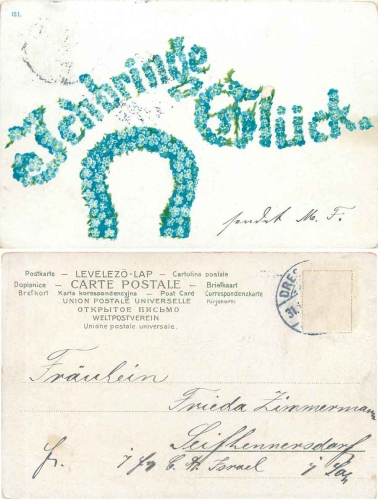 181.
Ich bringe
Glück.
sendet M. F.
Postkarte – LEVELEZÖ-LAP – Cartolina postale
Dopisnice – CARTE POSTALE – Briefkaart
Brefkort Karta korespondencyjna – Post Card Correspondenzkarte
UNION POSTALE UNIVERSELLE
ОТКРЫТОЕ ПИСЬМО
WELTPOSTVEREIN
Unione postale universale.
DRES
31.
Fräulein
Frieda Zimmermann
Seifhennersdorf
C. H. Israel i/Sa